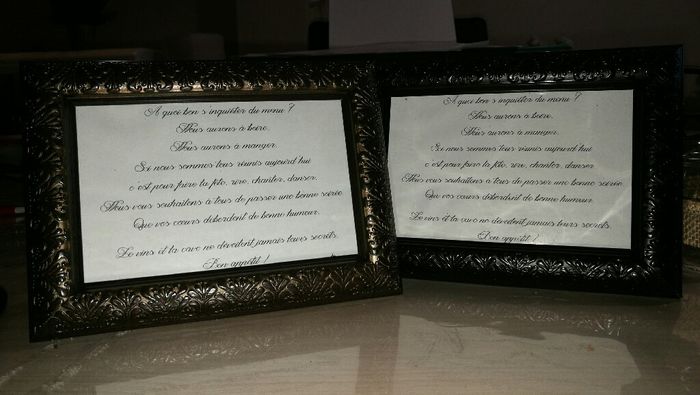 A quoi bon s'inquiéter du menu ?
Nous aurons à boire,
Nous aurons à manger.
Si nous sommes tous réunis aujourd'hui
c'est pour faire la fête, rire, chanter, danser.
Nous vous souhaitons à tous de passer une bonne soirée.
Que vos cœurs débordent de bonne humeur.
Le vins et la cave ne dévoilent jamais leurs secrets.
Bon appétit !
A quoi bon s'inquiéter du menu ?
Nous aurons à boire,
Nous aurons à manger.
Si nous sommes tous réunis aujourd'hui
c'est pour faire la fête, rire, chanter, danser.
Nous vous souhaitons à tous de passer une bonne soirée.
Que vos cœurs débordent de bonne humeur.
Le vins et la cave ne dévoilent jamais leurs secrets.
Bon appétit !